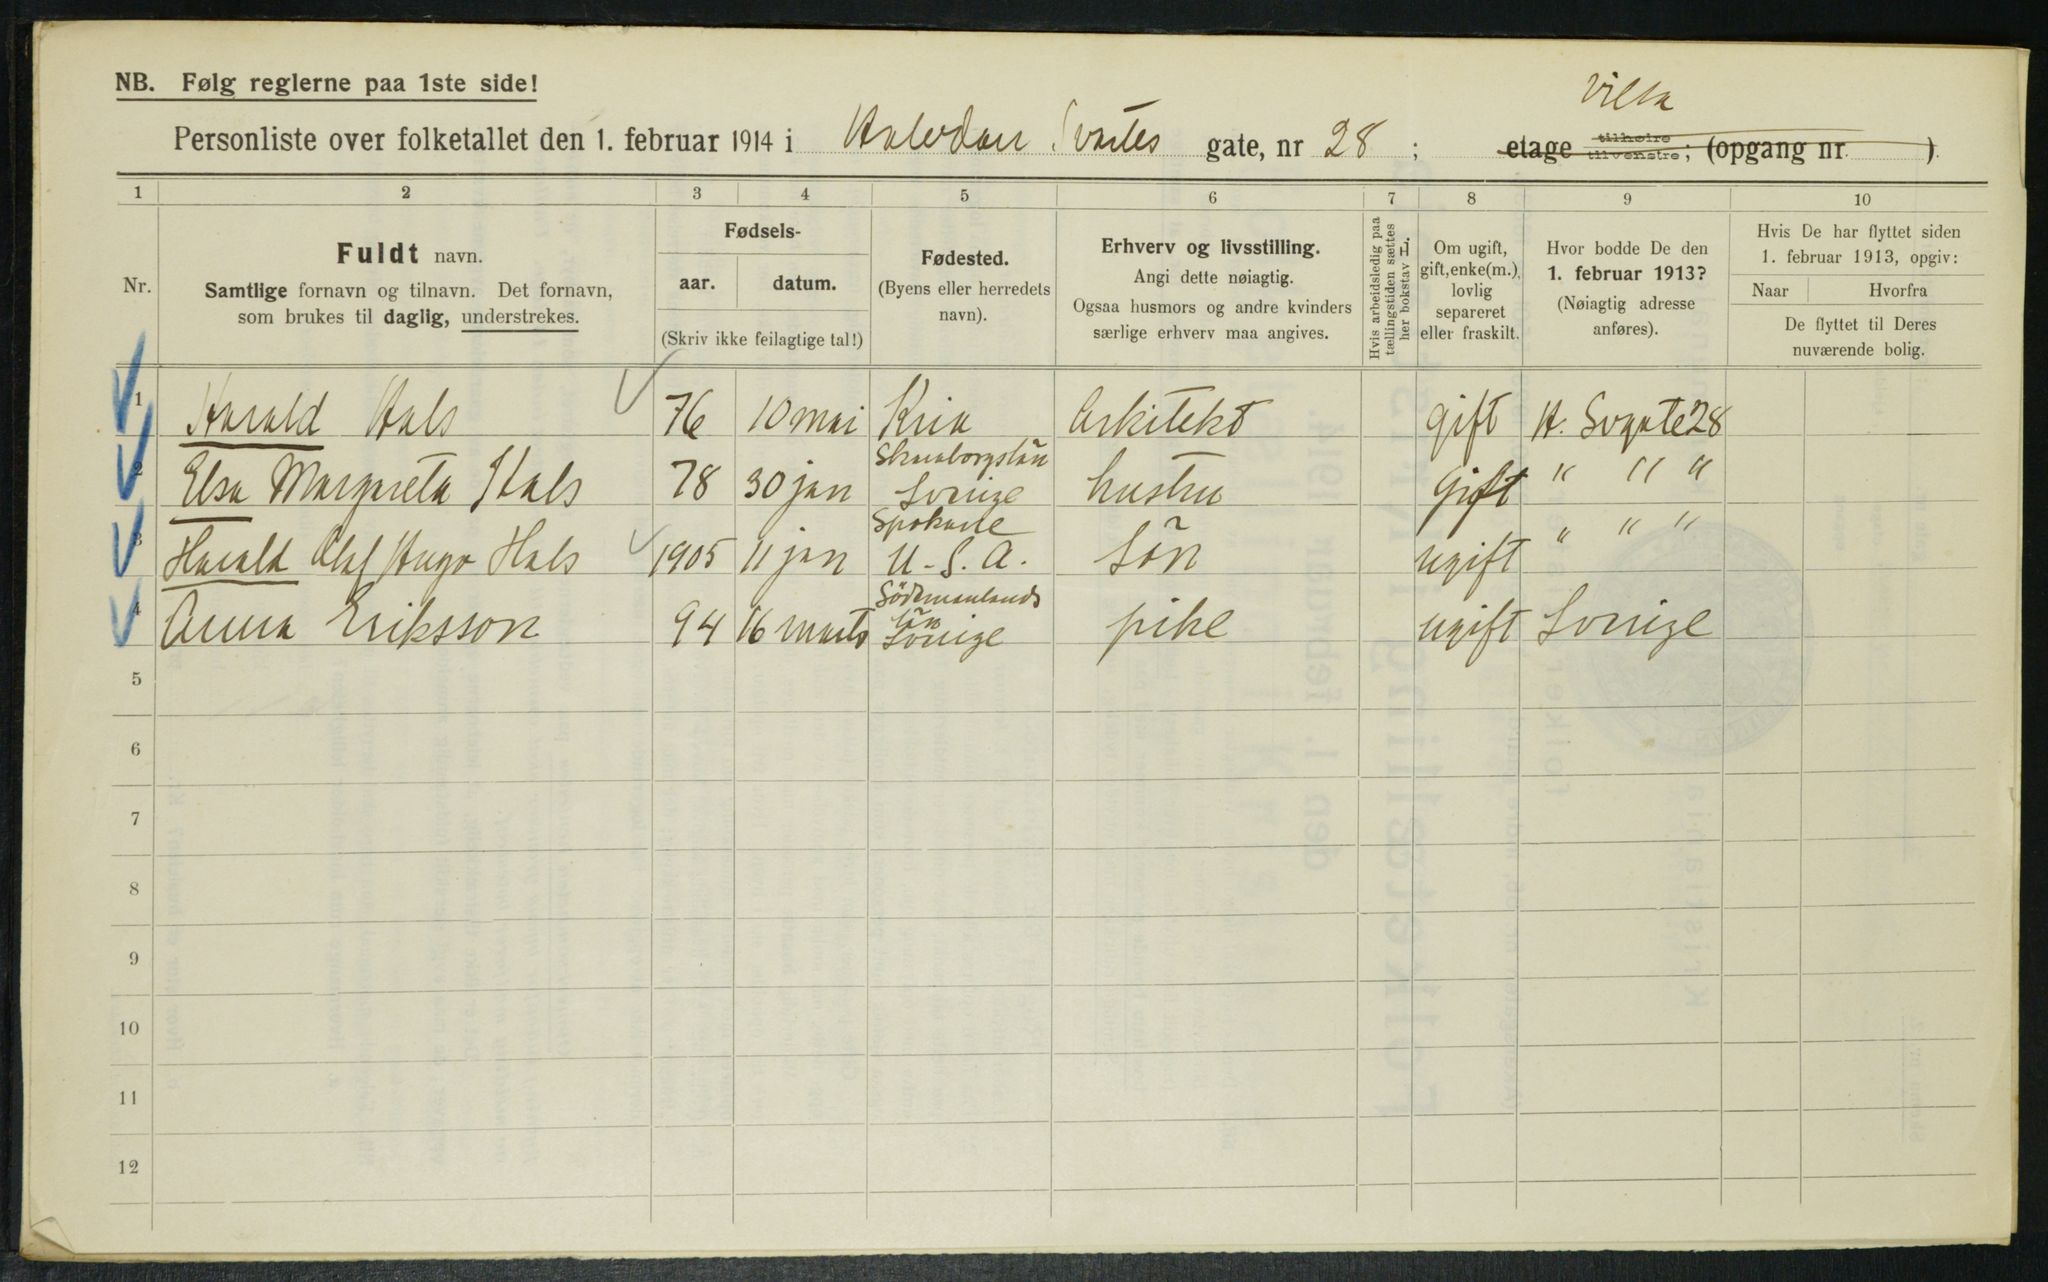 NB. Følg reglerne paa 1ste side!
Villa
Personliste over folketallet den 1. februar 1914 i Halvdan Svartes gate, nr 28 ; etage tilhøire tilvenstre; (opgang nr. )
1 2 3 4 5 6 7 8 9 10
Nr.
Fuldt navn.
Samtlige fornavn og tilnavn. Det fornavn,
som brukes til daglig, understrekes.
Fødsels-
aar. datum.
(Skriv ikke feilagtige tal!)
Fødested.
(Byens eller herredets
navn).
Erhverv og livsstilling.
Angi dette nøiagtig.
Ogsaa husmors og andre kvinders
særlige erhverv maa angives.
Hvis arbeidsledig paa
tællingstiden sættes
her bokstav L.
Om ugift,
gift, enke(m.),
lovlig
separeret
eller fraskilt.
Hvor bodde De den
1. februar 1913?
(Nøiagtig adresse
anføres).
Hvis De har flyttet siden
1. februar 1913, opgiv:
Naar Hvorfra
De flyttet til Deres
nuværende bolig.
1 Harald Hals 76 10 mai Kria Arkitekt gift H. Svgate 28
Skaraborgslän
2 Elsa Margareta Hals 78 30 jan Sverige hustru gift " " "
Spokane
3 Harald Olaf Hugo Hals 1905 11 jan U.S.A. Sön ugift " " "
Södermanlands
län
4 Anna Eriksson 94 16 marts Sverige pike ugift Sverige
5
6
7
8
9
10
11
12